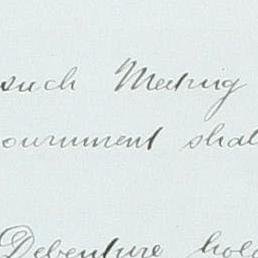 such Meeting
ournment shall
Debenture hold